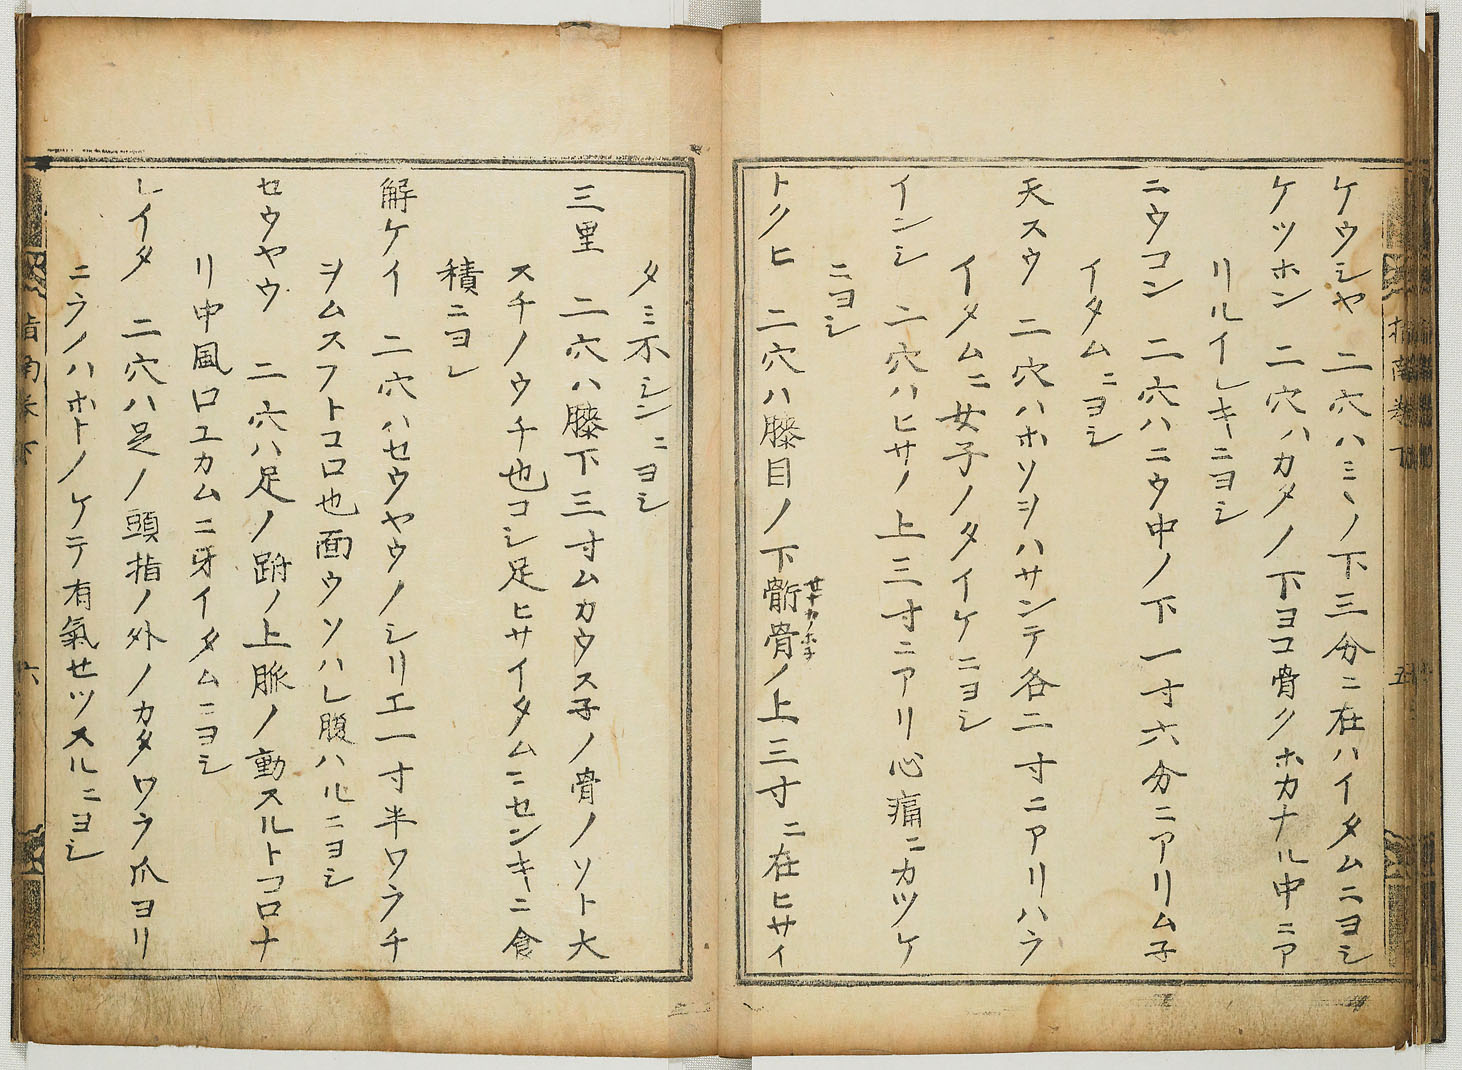 ケウシヤ 二穴ハミヽノ下三分ニ在ハイタムニヨシ
ケツホン 二穴ハカタノ下ヨコ骨クホカナル中ニア
リルイレキニヨシ
ニウコン 二穴ハニウ中ノ下一寸六分ニアリム子
イタムニヨシ
天スウ 二穴ハホソヲハサンテ各二寸ニアリハラ
イタムニ女子ノタイケニヨシ
インシ 二穴ハヒサノ上三寸ニアリ心痛ニカツケ
ニヨシ
トクヒ 二穴ハ膝目ノ下䯒骨ノ上三寸ニ在ヒサイ
タミ不シンニヨシ
三里 二穴ハ膝下三寸ムカウス子ノ骨ノソト大
スチノウチ也コシ足ヒサイタムニセンキニ食
積ニヨシ
解ケイ 二穴ハセウヤウノシリエ一寸半ワラチ
ヲムスフトコロ也面ウソハレ腹ハルニヨシ
セウヤウ 二穴ハ足ノ跗ノ上脈ノ動スルトコロナ
リ中風口ユカムニ牙イタムニヨシ
レイタ 二穴ハ足ノ頭指ノ外ノカタワラ爪ヨリ
ニラノハホトノケテ有氣セツスルニヨシ
指南卷下
五
六